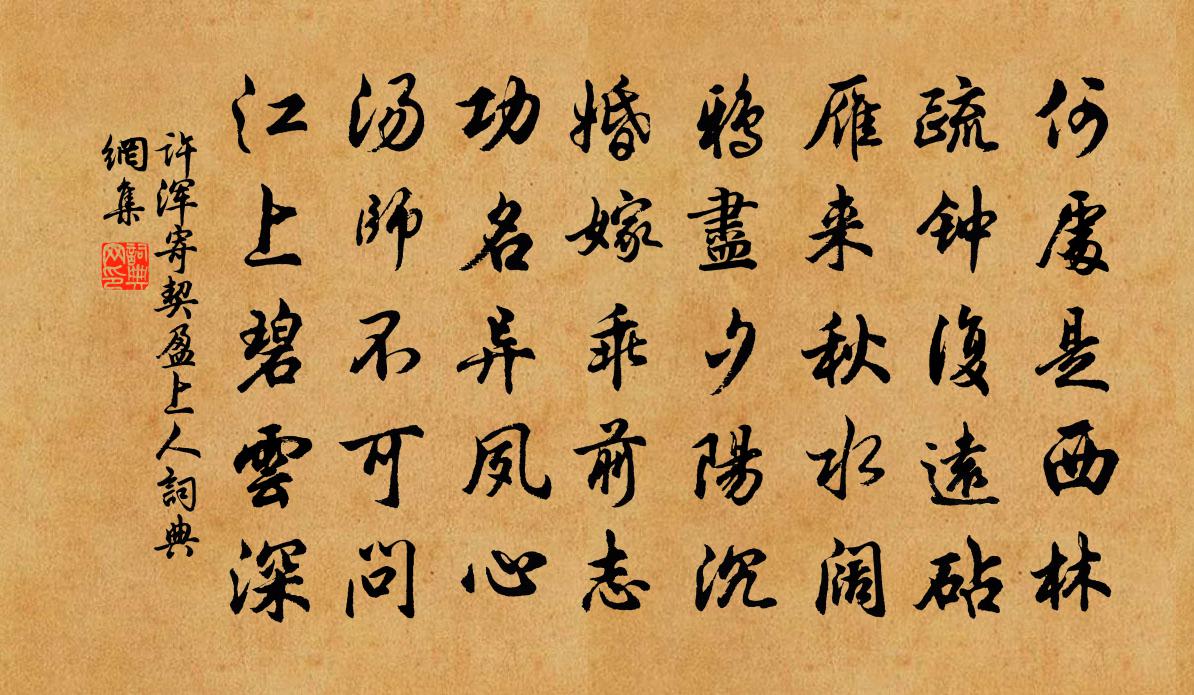 何處是西林
疏钟復遠砧
雁来秋水阔
鴉盡夕陽沉
婚嫁乖前志
功名异夙心
汤師不可問
江上碧雲深
许浑寄契盈上人詞典
網集
詞典
网印